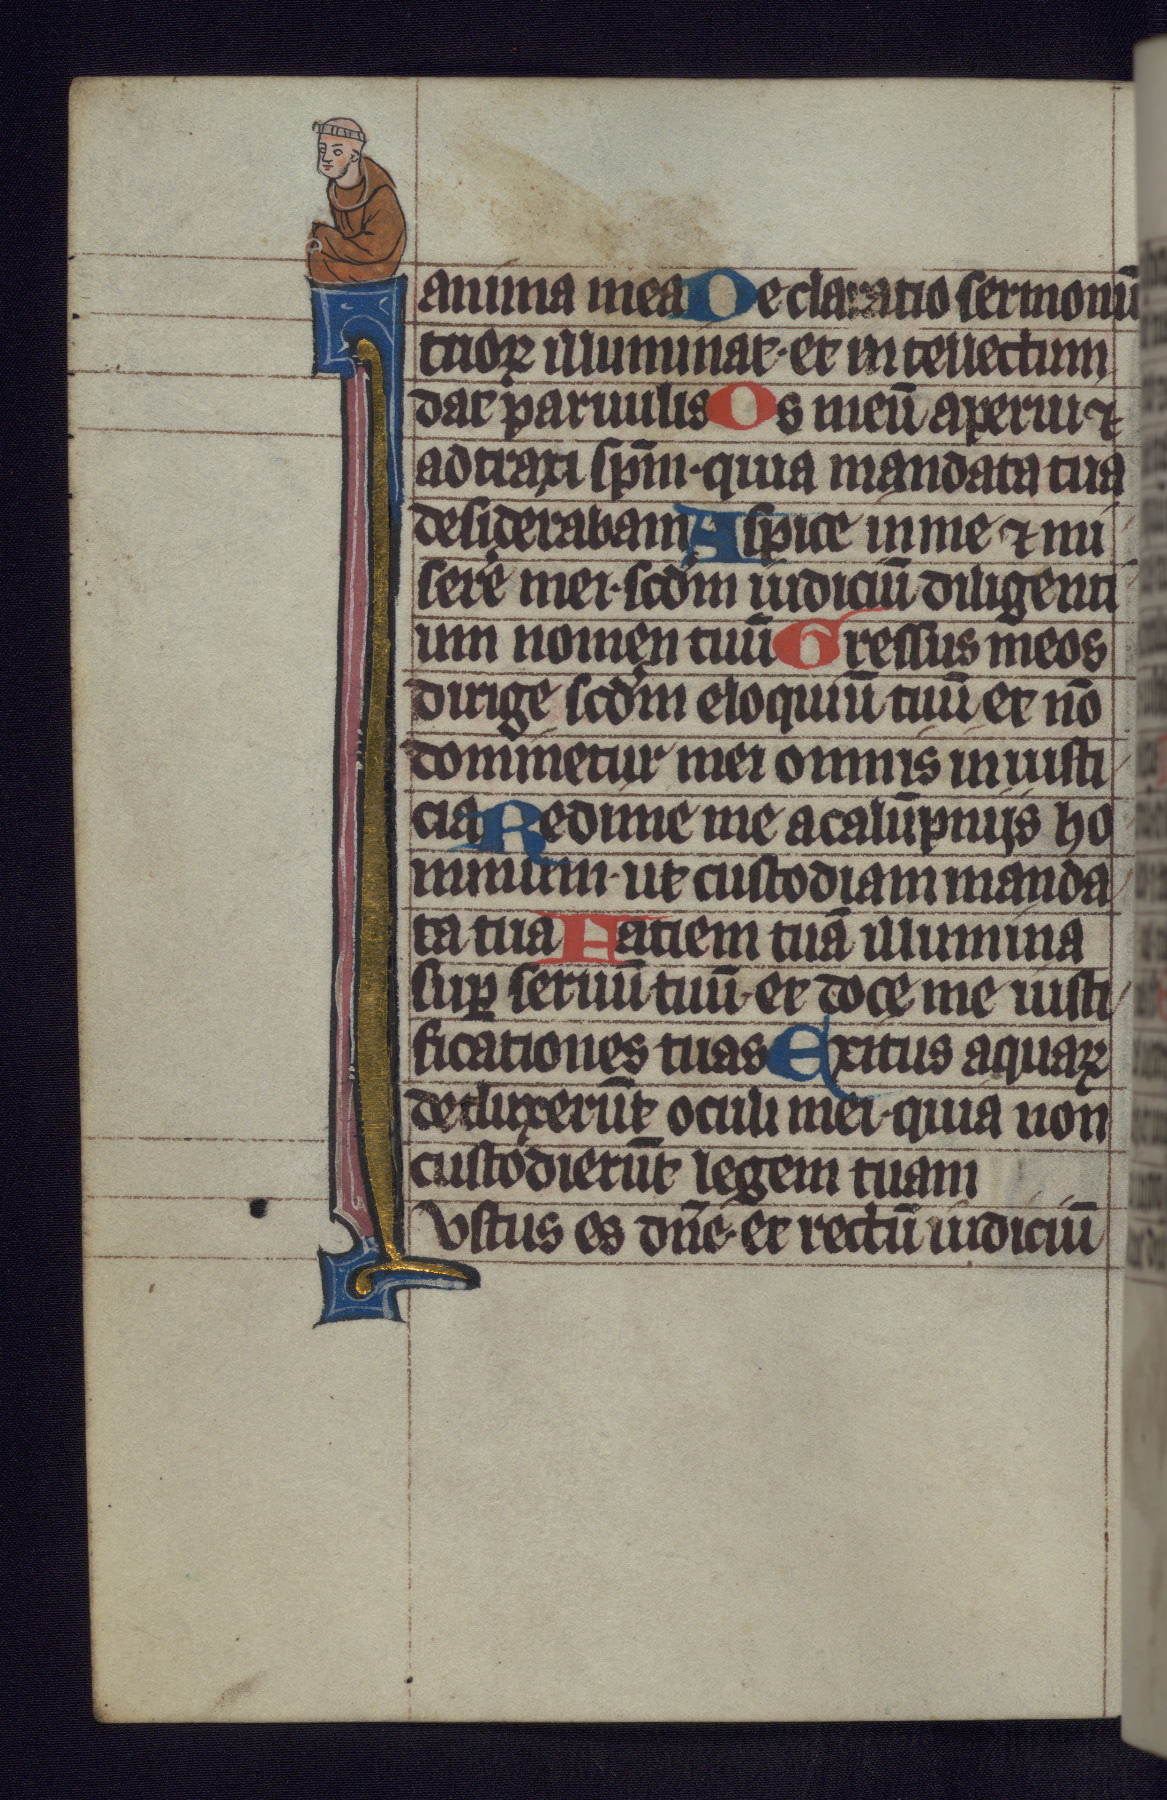 anima mea Declaratio sermonū
tuoꝝ illuminat · et intellectum
dat paruulis Os meū aperui ⁊
adtraxi sp̄m · quia mandata tua
desiderabam Aspice in me ⁊ mi
sere mei · scdm̄ iudiciū diligenti
um nomen tuū Gressus meos
dirige scdm̄ eloquiū tuū et nō
dominetur mei omnis iniusti
cia Redime me a calūpnijs ho
minum · ut custodiam manda
ta tua Faciem tuā illumina
sup̄ seruū tuū · et doce me iusti
ficationes tuas Exitus aquaꝝ
deduxerūt oculi mei · quia non
custodierūt legem tuam
Iustus es dn̄e · et rectū iudiciū